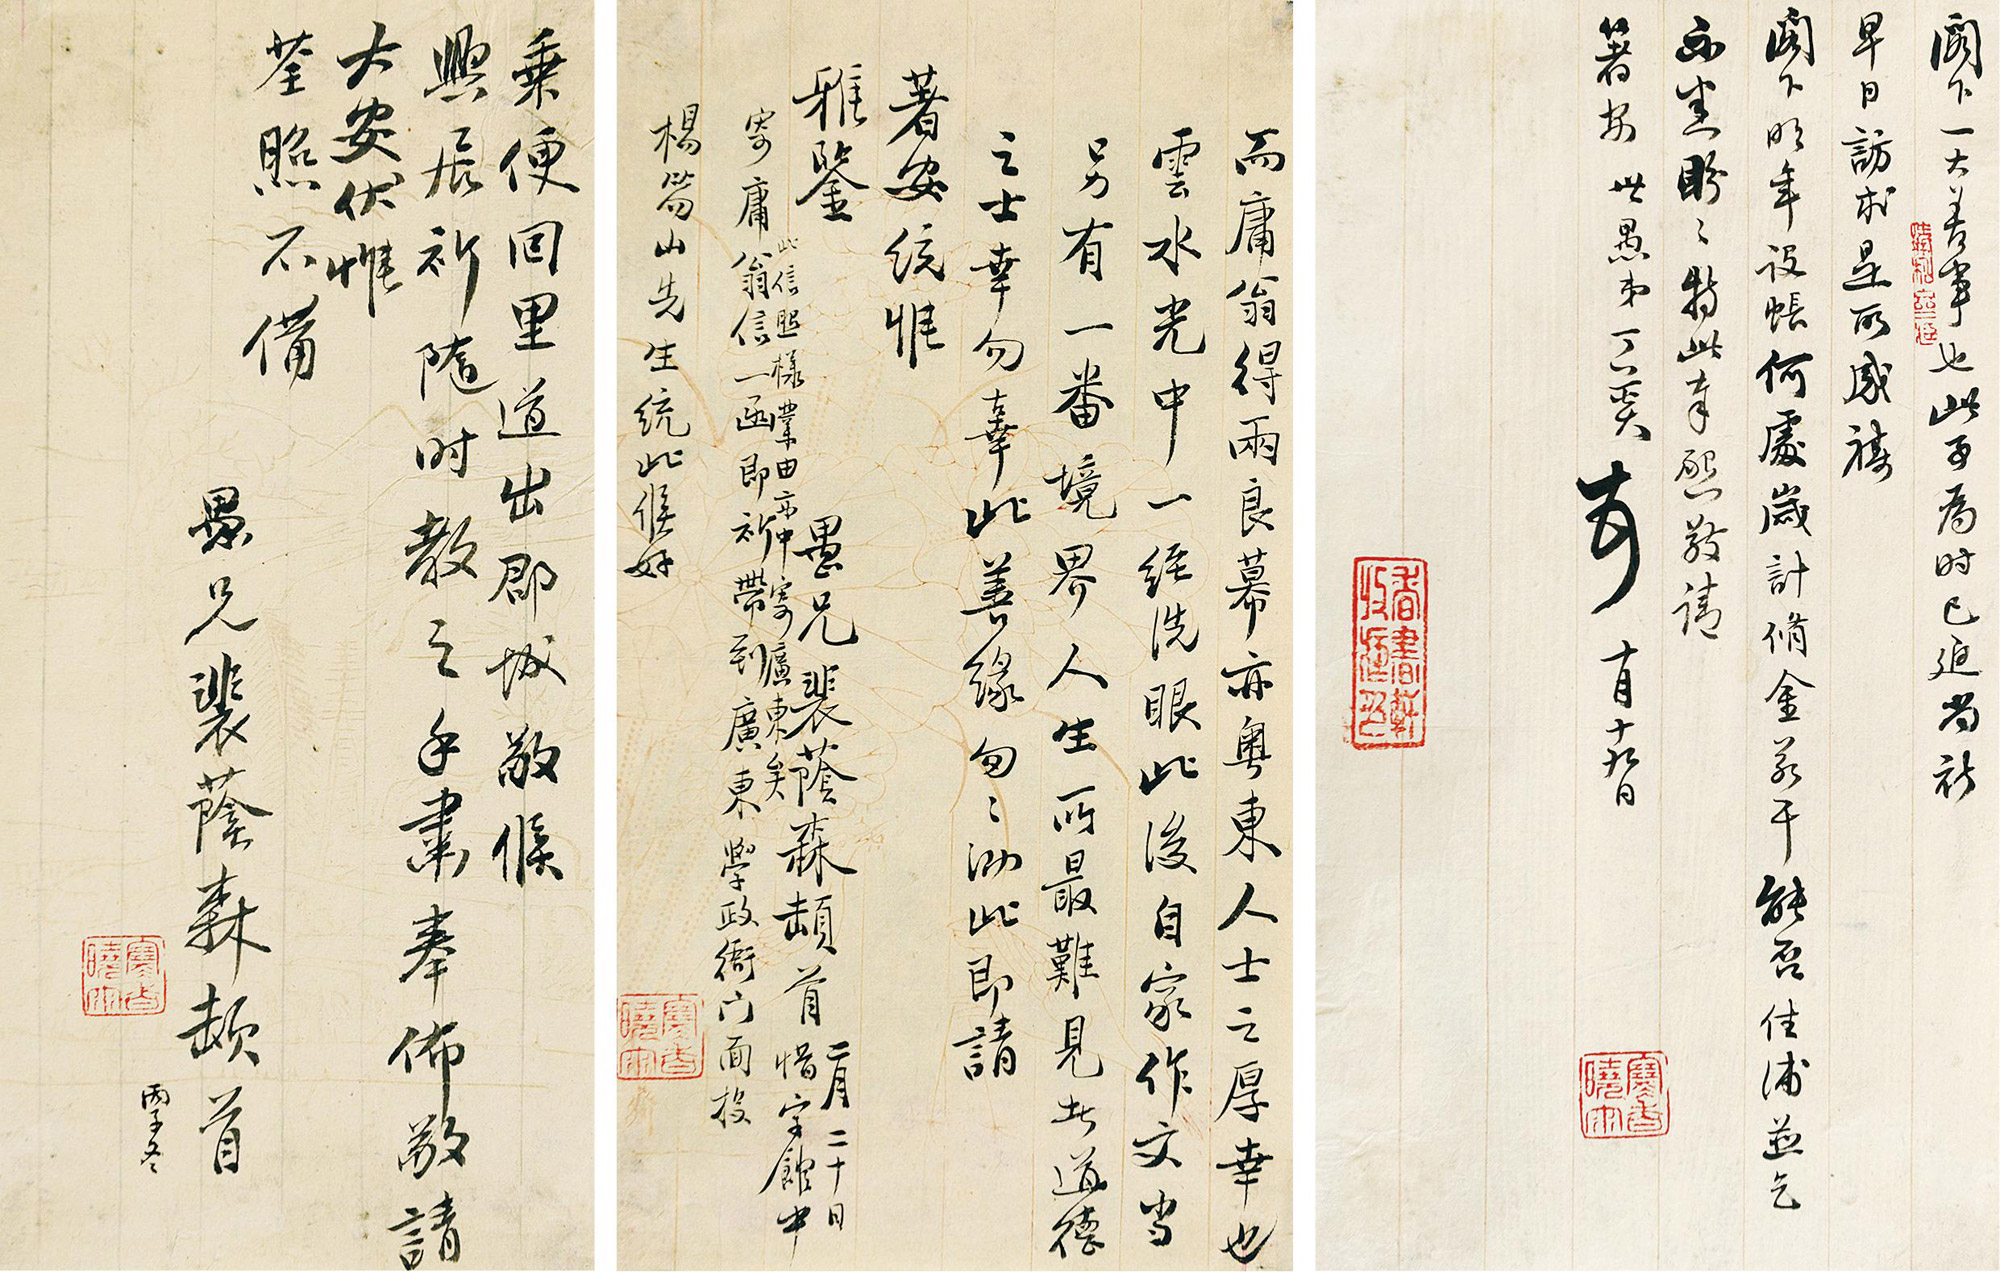 閣下一大善事也此子為时已迫尚祈
早日訪求是所感禱
閣下明年設帳何處歲計脩金若干能否佳浦並乞
示悉盼〻特此奉懇敬請
著安 世愚弟丁
十月十九日
而庸翁得兩良幕亦粵東人士之厚幸也
雲水光中一經洗眼此後自家作文当
另有一番境界人生所最難見者道德
之士幸勿辜此善緣勿〻泐此即請
著安統惟
雅鑒
愚兄裴蔭森頓首 二月二十日
惜字館中
此信照樣業由京中寄廣東矣
寄庸翁信一函即祈帶到廣東學政衙门面投
楊 山先生統此候好
乘便回里道出郡城敬候
興居祈隨时教之手肅奉佈敬請
大安伏惟
荃照不備
愚兄裴蔭森頓首
丙子冬